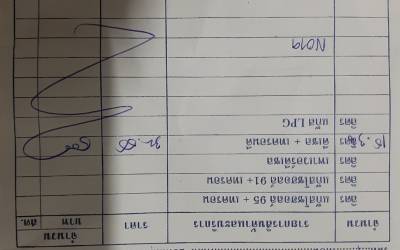 จำนวน รายการสินค้าและบริการ ราคา จำนวน
บาท สต.
ลิตร แก๊สโซฮอล์ 95 + เทครอน
ลิตร แก๊สโซฮอล์ 91 + เทครอน
ลิตร เพาเวอร์ดีเซล
15.36 ลิตร ดีเซล + เทครอนดี 32.55 500
ลิตร แก๊ส LPG